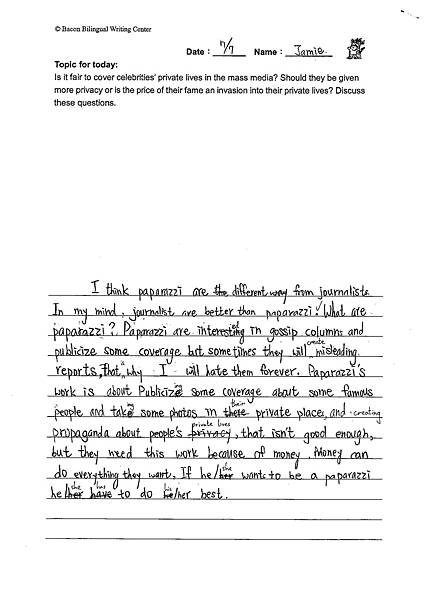 © Bacon Bilingual Writing Center
Date : 7/7 Name : Jamie
Topic for today:
Is it fair to cover celebrities' private lives in the mass media? Should they be given
more privacy or is the price of their fame an invasion into their private lives? Discuss
these questions.
I think paparazzi are the different way from journalists.
In my mind, journalist are better than paparazzi. What are
paparazzi? Paparazzi are interested in gossip columns and
publicize some coverage but sometimes they will create misleading
reports, that's why I will hate them forever. Paparazzi's
work is about Publicizing some coverage about some famous
people and taking some photos in their private place, and creating
propaganda about people's private lives, that isn't good enough,
but they need this work because of money. Money can
do everything they want. If he/she wants to be a paparazzi
he/she has to do his/her best.